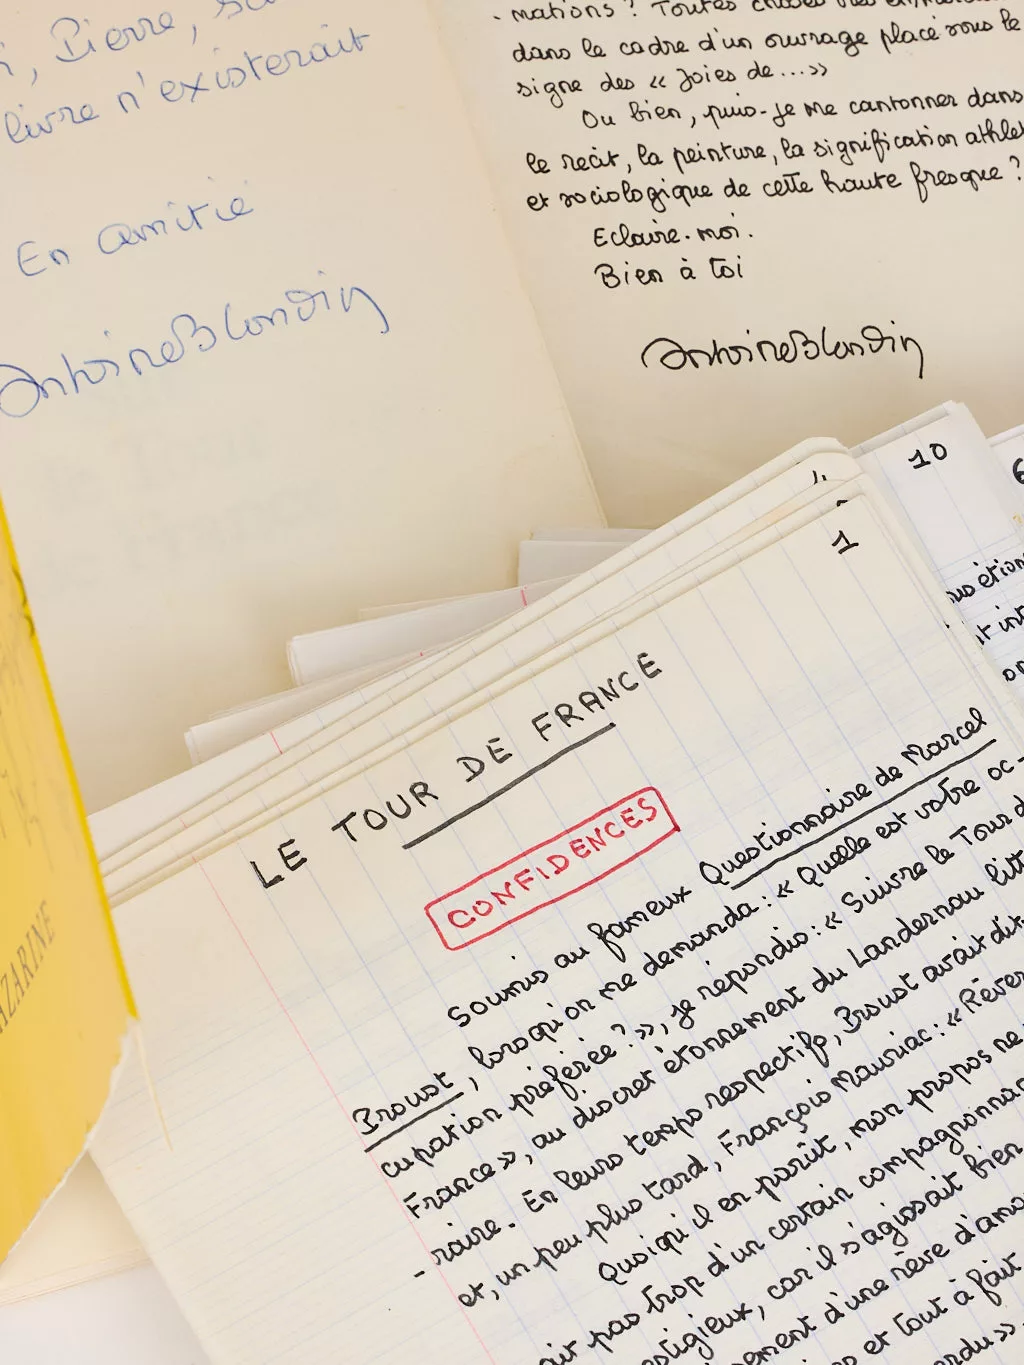 Pierre,
livre n'existerait
En amitié
Antoine Blondin
-mations ? Toutes choses
dans le cadre d'un ouvrage placé sous le
signe des « Joies de...»
Ou bien, puis-je me cantonner dans
le récit, la peinture, la signification
et sociologique de cette haute fresque ?
Eclaire-moi.
Bien à toi
Antoine Blondin
10
6
4
1
LE TOUR DE FRANCE
CONFIDENCES
Soumis au fameux Questionnaire de Marcel
Proust, lorsqu'on me demanda : « Quelle est votre oc-
cupation préférée ? », je répondis : « Suivre le Tour de
France », au discret étonnement du Landernau litté
-raire. En leurs temps respectifs, Proust avait dit
et, un peu plus tard, François Mauriac : « Rêver
Quoiqu'il en parût, mon propos ne
pas trop d'un certain compagnonnage
car il s'agissait bien
d'une rêve
et tout à fait
AZARINE